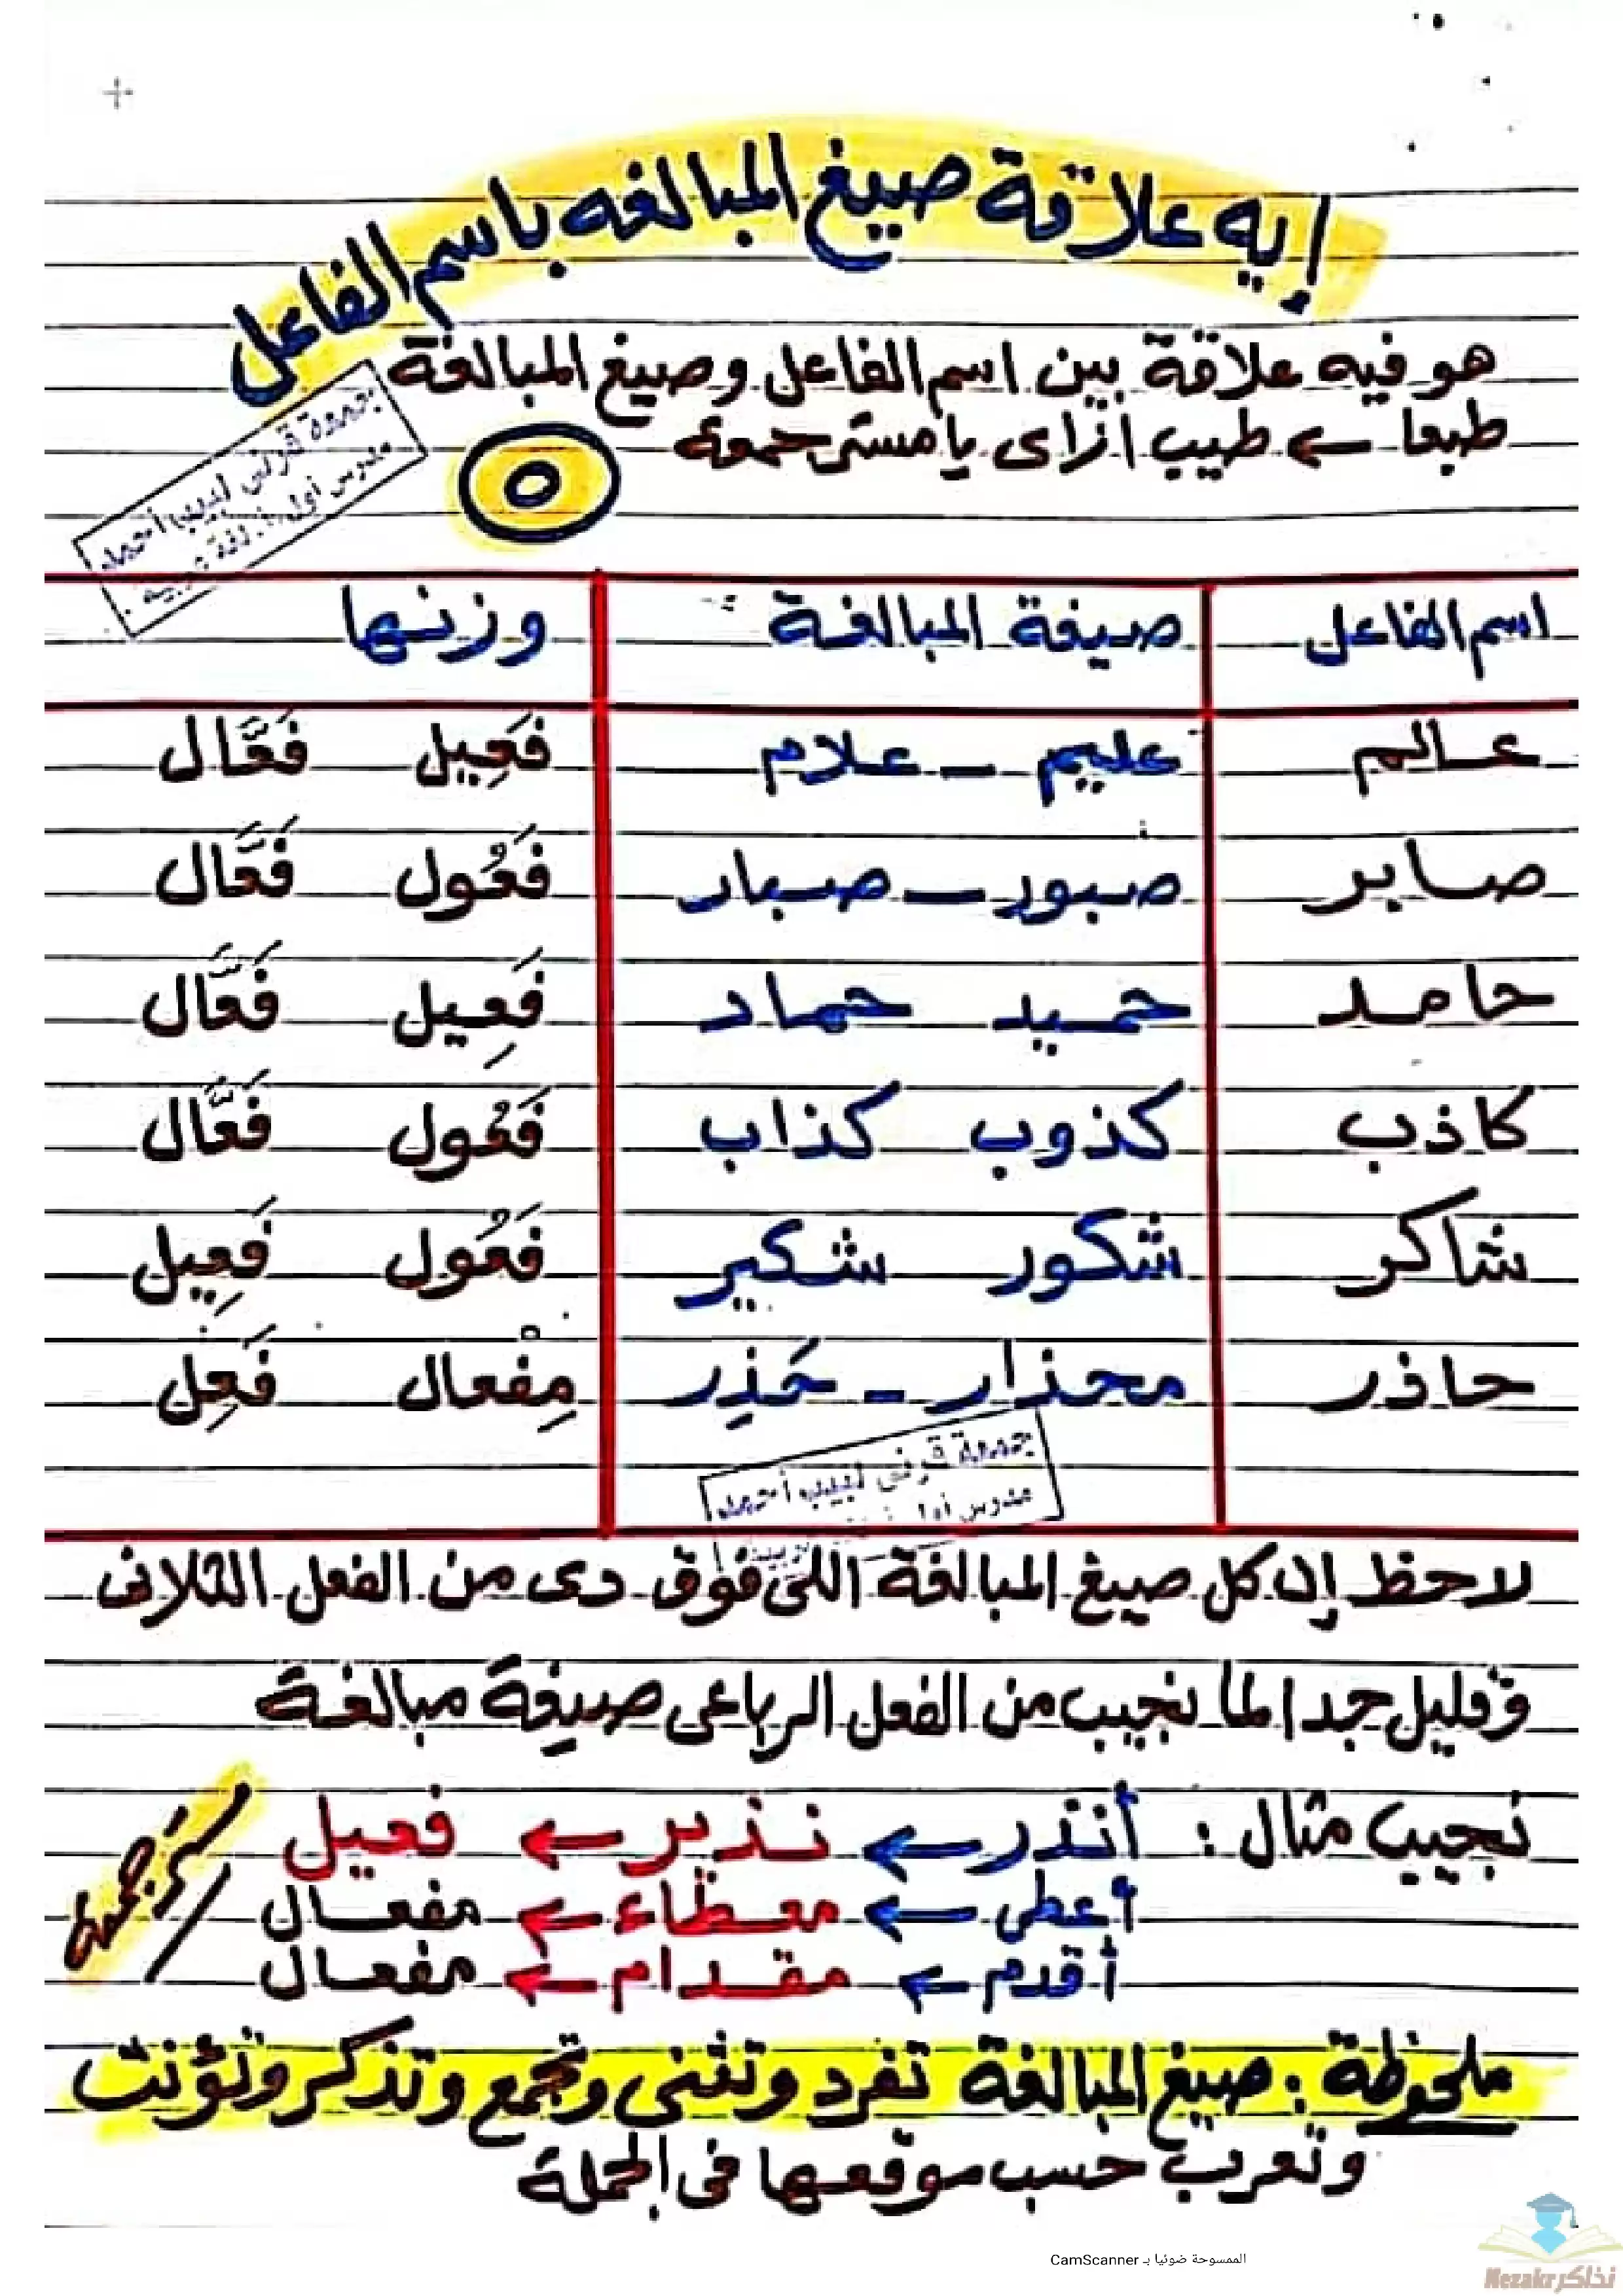 إيه علاقة صيغ المبالغه باسم الفاعل
هو فيه علاقة بين اسم الفاعل وصيغ المبالغة
طبعا ← طيب ازاى يا مستر جمعه
جمعة قرنى لبيب أحمد
مدرس أول لغة عربية
٥
اسم الفاعل صيغة المبالغة وزنها
عالم عليم - علام فَعِيل فَعَّال
صابر صبور - صبار فَعُول فَعَّال
حامد حميد حماد فَعِيل فَعَّال
كاذب كذوب كذاب فَعُول فَعَّال
شاكر شكور شكير فَعُول فَعِيل
حاذر محذار - حَذِر مِفْعال فَعِل
جمعة قرنى لبيب أحمد
مدرس أول
لاحظ إن كل صيغ المبالغة اللى فوق دى من الفعل الثلاثى
وقليل جدا لما نجيب من الفعل الرباعى صيغة مبالغة
نجيب مثال : أنذر ← نذير ← فعيل
أعطى ← معطاء ← مفعال
أقدم ← مقدام ← مفعال
ملحوظة : صيغ المبالغة تفرد وتثنى وتجمع وتذكر وتؤنث
وتعرب حسب موقعها فى الجملة
الممسوحة ضوئيا بـ CamScanner
نذاكر Nezakr